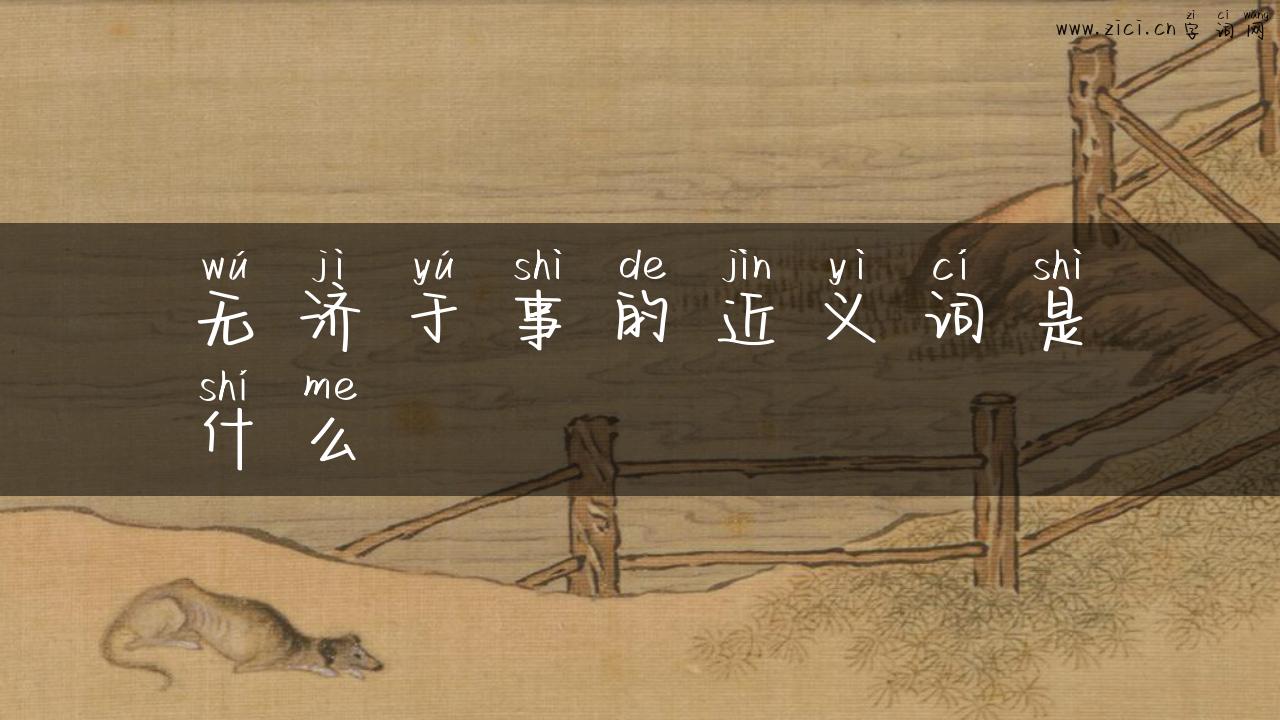 zi ci wang
www.zici.cn 字词网
wú jì yú shì de jìn yì cí shì
无济于事的近义词是
shí me
什么